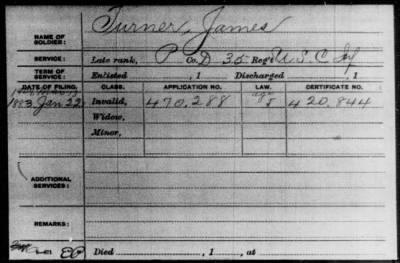 Turner, James
NAME OF SOLDIER:
SERVICE: Late rank, P Co. D 35 Reg't U.S.C. Inf
TERM OF SERVICE: Enlisted , 1 Discharged , 1
DATE OF FILING. CLASS. APPLICATION NO. LAW. CERTIFICATE NO.
1883 Jan 22 Invalid, 470.288 420.844
Widow,
Minor,
ADDITIONAL SERVICES:
REMARKS:
Died , 1 , at